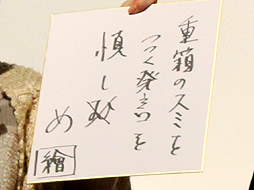 重箱のスミを
つつく発言を
慎し致
め
繪